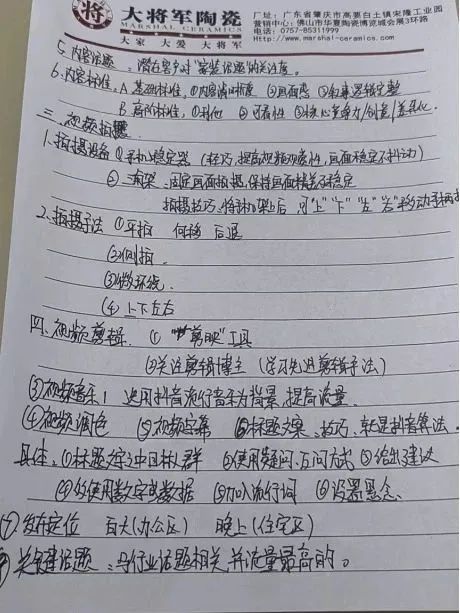 大将军陶瓷
MARSHAL CERAMICS
大家 大爱 大将军
厂址:广东省肇庆市高要白土镇宋隆工业园
营销中心:佛山市华夏陶瓷博览城会展3楼
电话:0757-85311999
http://marshal-ceramics.com
5.内容话题:潜在客户对家装话题的关注度。
6.内容标准:A 基础标准:①内容清晰度 ②画面感 ③叙事逻辑完整
B 高阶标准:①利他 ②可看性 ③核心竞争力/创意/差异化
三、视频拍摄
1.拍摄设备 ①手机稳定器(轻巧,提高视频观看性,画面稳定不抖动)
②三角架、固定画面拍摄,保持画面精美稳定
拍摄技巧、将手机架上后 可"上""下""左""右"移动手柄拍
2.拍摄手法 ①平拍 前移 后退
(2)侧拍
(3)做环绕.
(4)上下左右
四、视频剪辑. ① "剪映"工具
②关注剪辑博主(学习先进剪辑手法)
③视频音乐! 运用抖音流行音乐为背景,提高流量.
④视频调色 ⑤视频字幕 ⑥标题文案、技巧、就是抖音算法.
具体、①标题文字中目标人群 ②使用疑问、反问方式 ③给出建议
④使用数字或数据 ⑤加入流行词 ⑥设置悬念.
⑦发布定位 白天(办公区) 晚上(住宅区)
关键话题、与行业话题相关,并流量最高的。